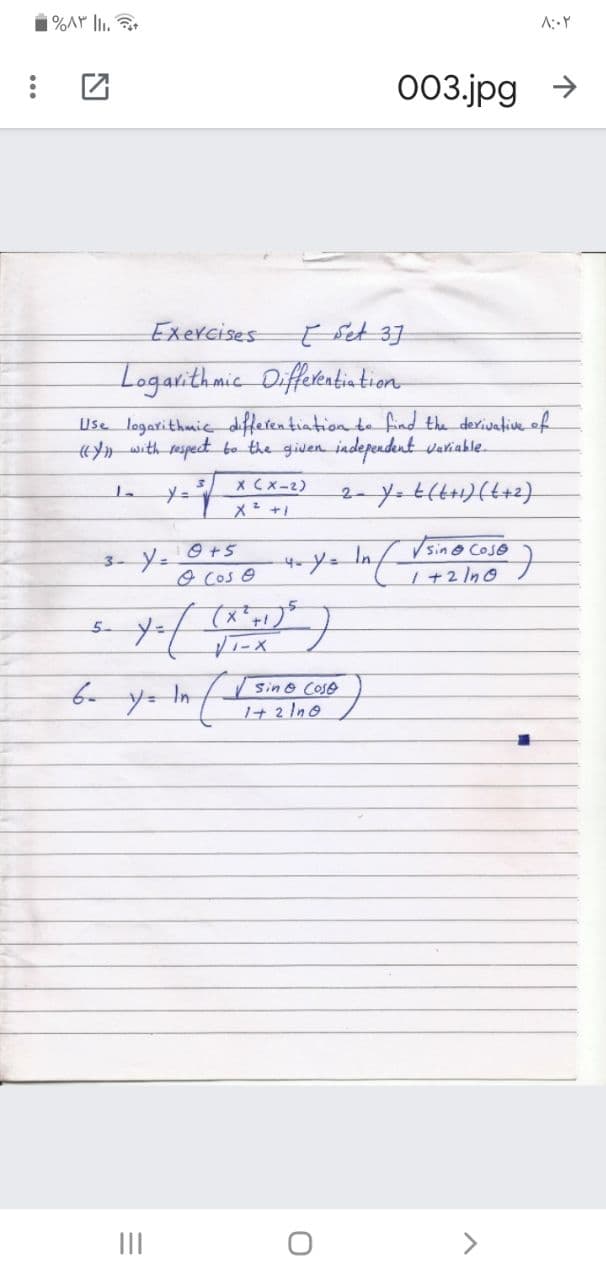 %٨٣ ٨:٠٢
003.jpg
Exercises [ Set 3]
Logarithmic Differentiation
Use logarithmic differentiation to find the derivative of
((y)) with respect to the given independent variable.
1- y = ∛(x(x-2) / (x² + 1)) 2- y = t(t+1)(t+2)
3- y = (θ+5) / (θ cos θ) 4- y = ln(√(sin θ cos θ) / (1 + 2 ln θ))
5- y = ((x²+1)⁵ / √(1-x))
6- y = ln(√(sin θ cos θ) / (1 + 2 ln θ))